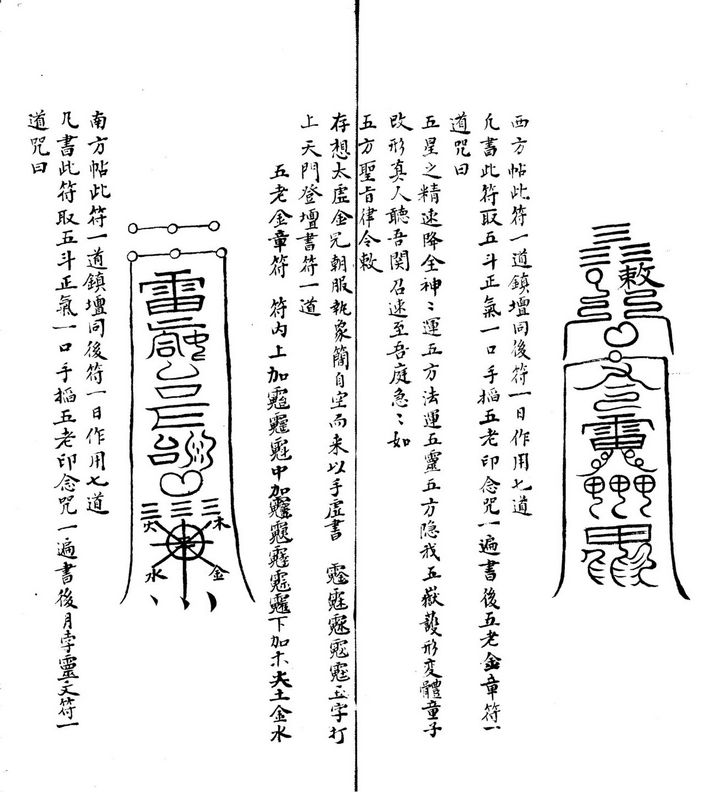 西方帖此符一道鎮壇同後符一日作用七道
凡書此符取五斗正氣一口手搯五老印念咒一遍書後五老金章符一
道咒曰
五星之精速降全神〻運五方法運五靈五方隐我五嶽護形変體童子
改形真人聽吾関召速至吾庭急〻如
五方聖旨律令敕
存想太虚金兄朝服執象簡自空而来以手虚書
五字打
上天門登壇書符一道
五老金章符 符内上加
中加
下加木火土金水
南方帖此符一道鎮壇同後符一日作用七道
凡書此符取五斗正氣一口手搯五老印念咒一遍書後月孛靈文符一
道咒曰
敕
雷
火
木
水
金